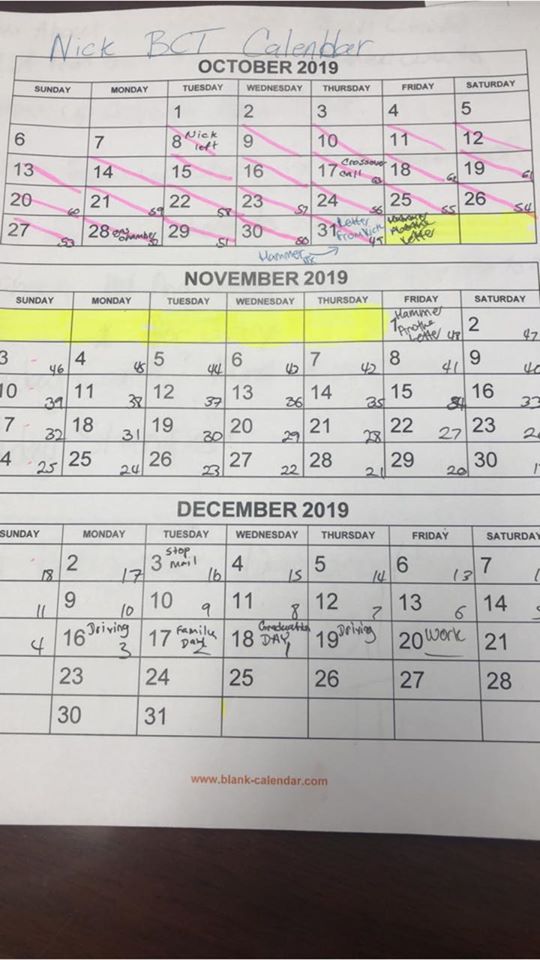 Nick BCT Calendar
OCTOBER 2019
SUNDAY MONDAY TUESDAY WEDNESDAY THURSDAY FRIDAY SATURDAY
1 2 3 4 5
6 7 8 Nick left 9 10 11 12
13 14 15 16 17 Crossover call 63 18 62 19 61
20 60 21 59 22 58 23 57 24 56 25 55 26 54
27 53 28 gas chamber 52 29 51 30 50 31 Letter From Nick 49 Letter
Hammer
NOVEMBER 2019
SUNDAY MONDAY TUESDAY WEDNESDAY THURSDAY FRIDAY SATURDAY
1 Hammer Another Letter 48 2 47
3 46 4 45 5 44 6 43 7 42 8 41 9 40
10 39 11 38 12 37 13 36 14 35 15 34 16 33
7 32 18 31 19 30 20 29 21 28 22 27 23 2
4 25 25 24 26 23 27 22 28 21 29 20 30 1
DECEMBER 2019
SUNDAY MONDAY TUESDAY WEDNESDAY THURSDAY FRIDAY SATURDAY
18 2 17 3 Stop Mail 16 4 15 5 14 6 13 7
11 9 10 10 9 11 8 12 7 13 6 14
4 16 Driving 3 17 Family Day 2 18 Graduation DAY 1 19 Driving 20 Work 21
23 24 25 26 27 28
30 31
www.blank-calendar.com